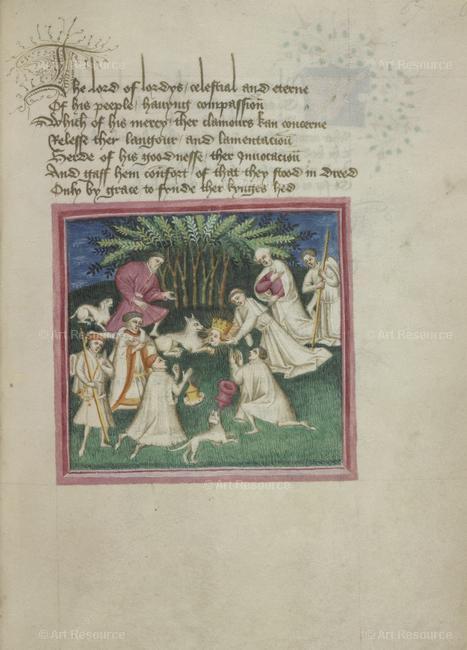 © Art Resource © Art Resource
The lord of lordys / celestial and eterne
Of his peeple / hauyng compassioñ
Which of his mercy / ther clamours kan concerne
Relesse ther langour / and lamentacioñ
Herde of his goodnesse / ther Inuocacioñ
And gaff hem confort / of that they stood in dreed
Only by grace / to fynde ther kynges hed
© Art Resource
© Art Resource © Art Resource
© Art Resource
© Art Resource © Art Resource